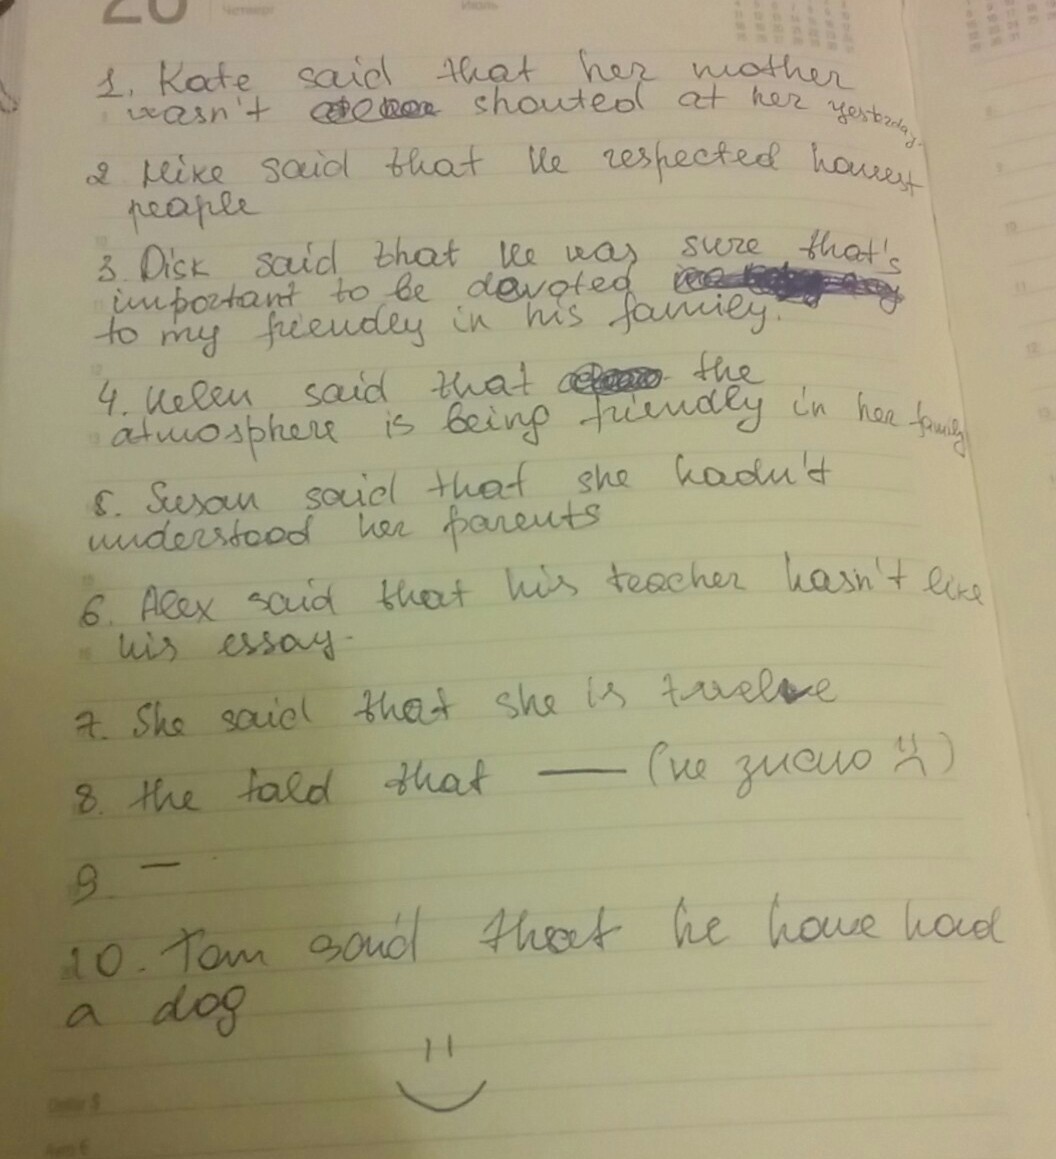 20
Четверг
Июль
1. Kate said that her mother
wasn't shouted at her yesterday.
2 Mike said that he respected honest
people
3. Disk said that he was sure that's
important to be devoted
to my friendly in his family.
4. Helen said that the
atmosphere is being friendly in her family
5. Susan said that she hadn't
understood her parents
6. Alex said that his teacher hasn't like
his essay.
7. She said that she is twelve
8. the told that — (не знаю )
9 —
10. Tom said that he have had
a dog